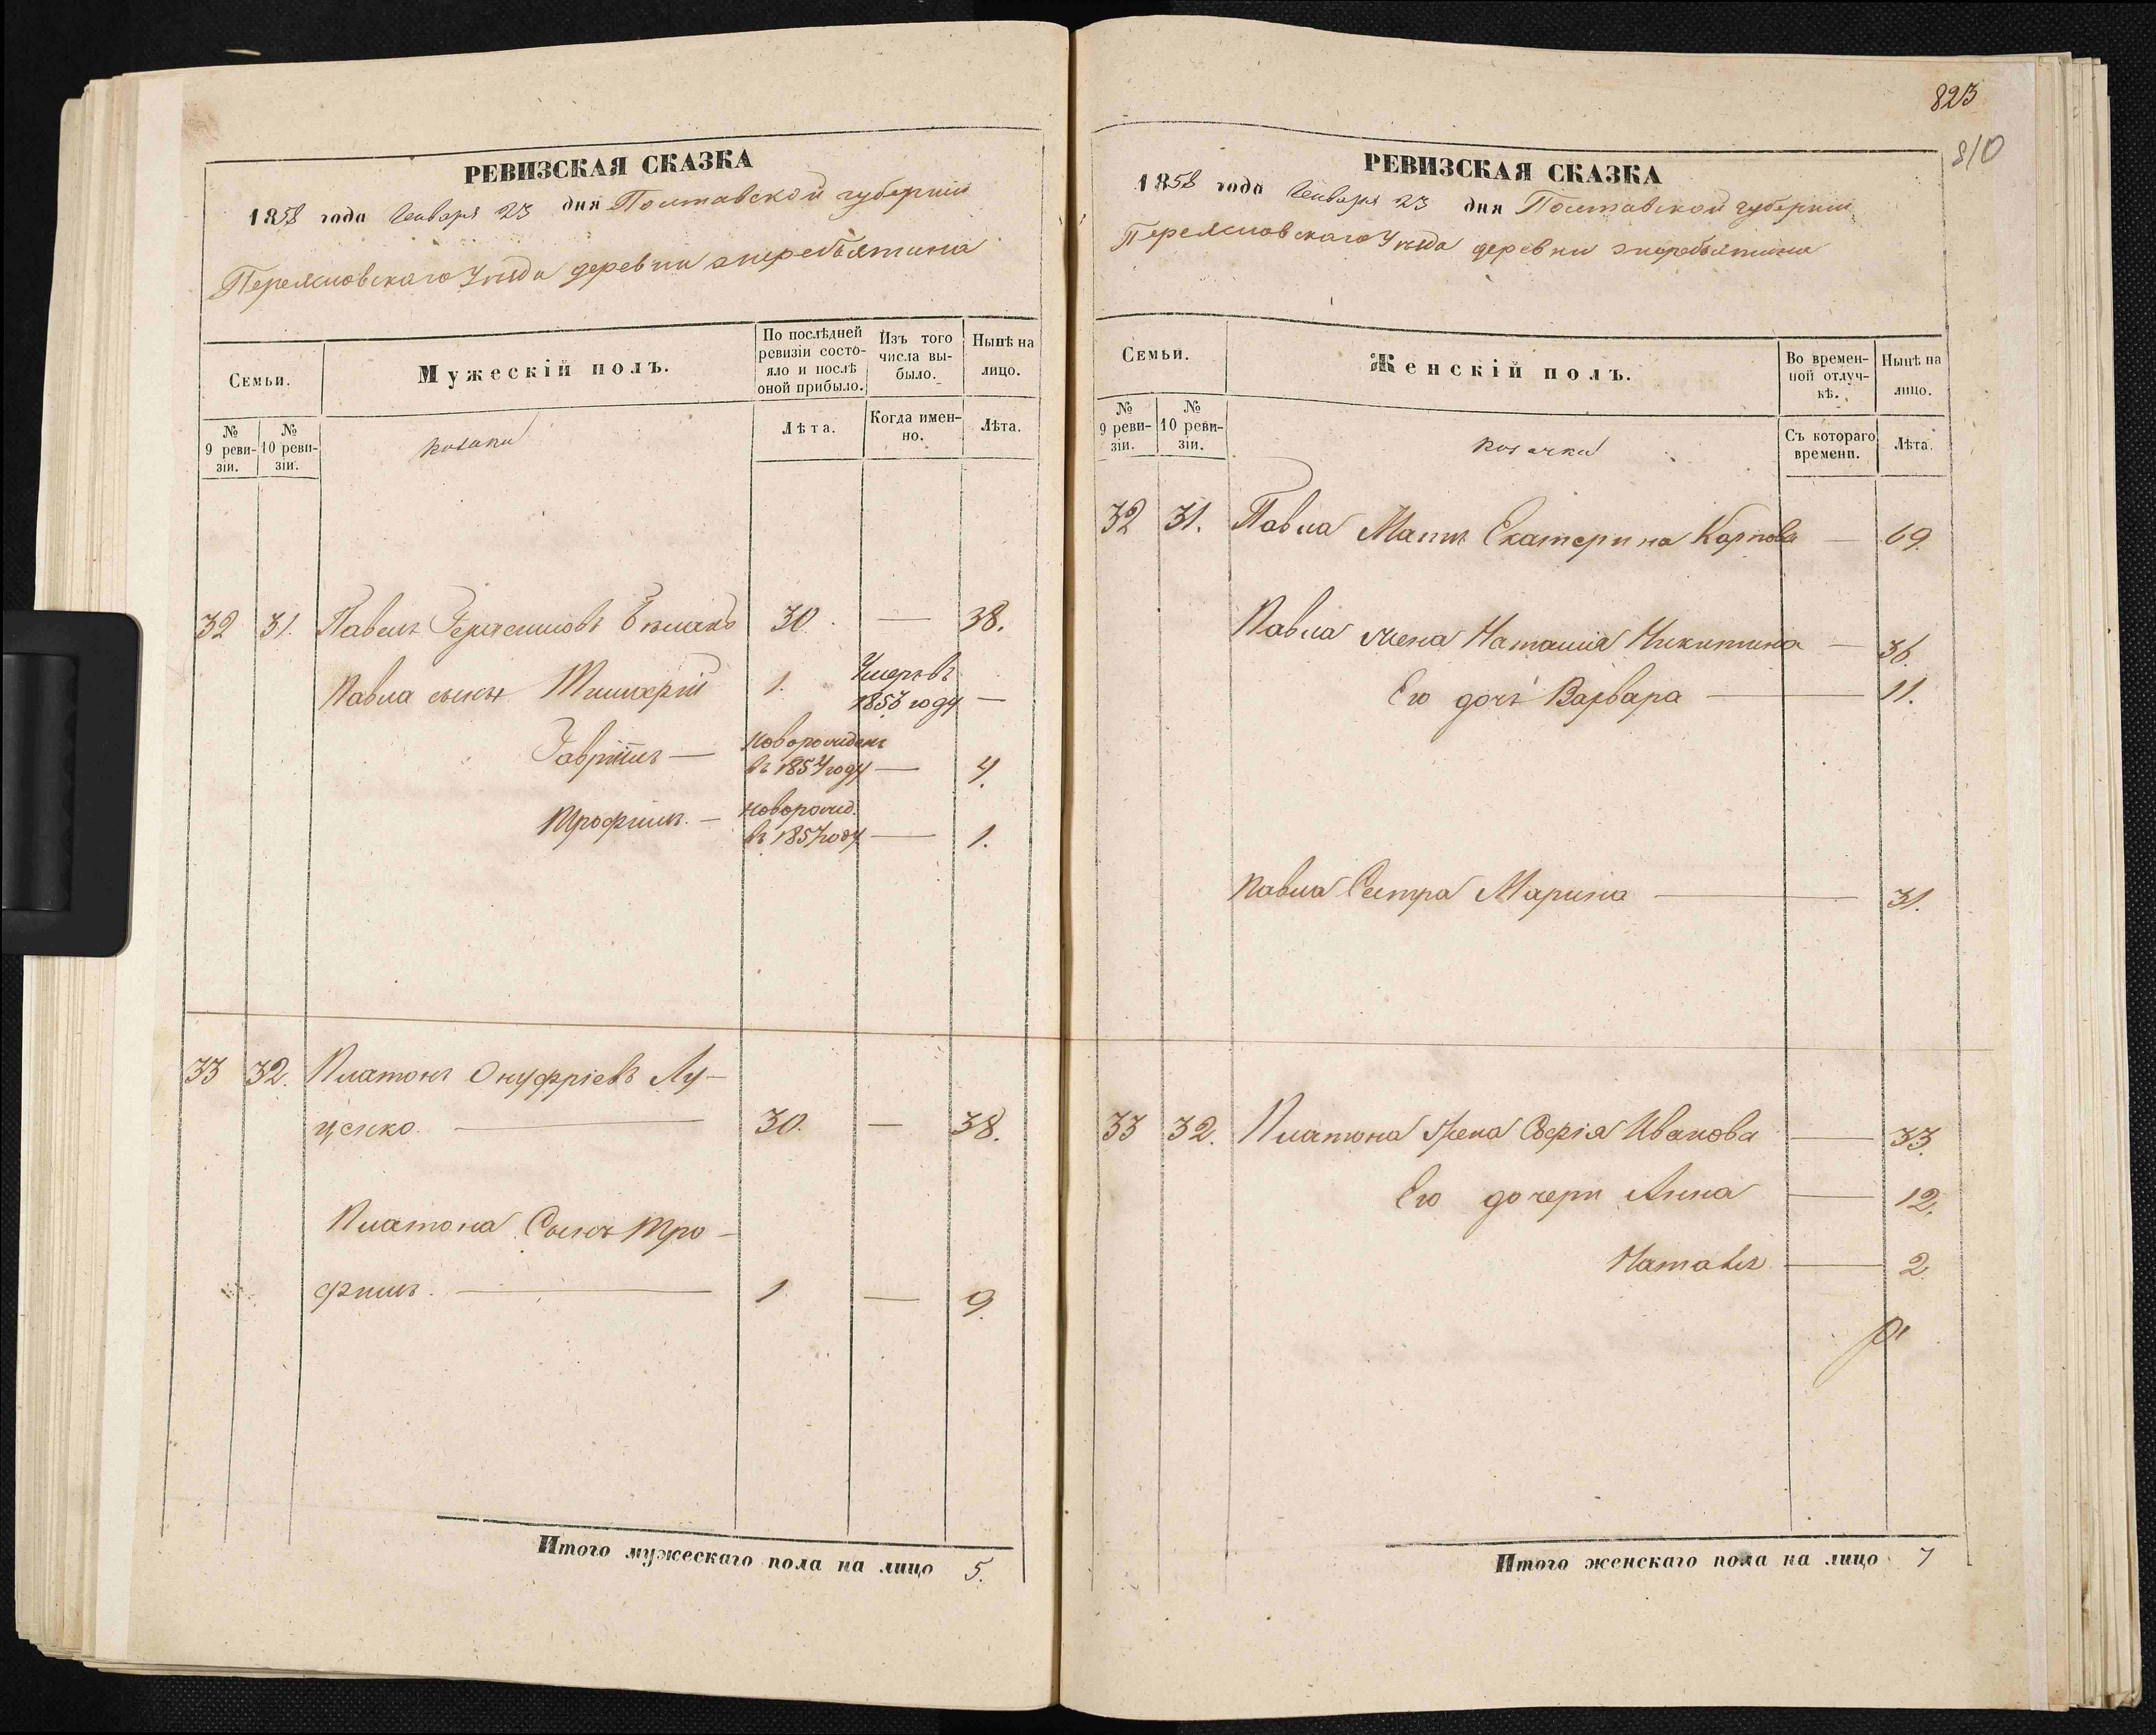 РЕВИЗСКАЯ СКАЗКА
1858 года Генваря 23 дня Полтавской губерніи
Переяславскаго Уѣзда деревни
Семьи.
Мужескій полъ.
По послѣдней ревизіи состояло и послѣ оной прибыло.
Изъ того числа выбыло.
Нынѣ на лицо.
№ 9 ревизіи.
№ 10 ревизіи.
козаки
Лѣта.
Когда именно.
Лѣта.
32 31. Павелъ Герасимовъ 30. — 38.
Павла сынъ 1. Умеръ въ
185 году —
Гавріилъ — новорожденъ
въ 1854 году — 4.
Трофимъ. — новорожд.
въ 1857 году — 1.
33 32. Платонъ Онуфріевъ Лу-
ценко. — 30. — 38.
Платона Сынъ Тро-
фимъ. — 1 — 9.
Итого мужескаго пола на лицо 5.
823
810
РЕВИЗСКАЯ СКАЗКА
1858 года Генваря 23 дня Полтавской губерніи
Переяславскаго Уѣзда деревни
Семьи.
Женскій полъ.
Во временной отлучкѣ.
Нынѣ на лицо.
№ 9 ревизіи.
№ 10 ревизіи.
козачки
Съ котораго времени.
Лѣта.
32 31. Павла Мать Екатерина Карпова — 69.
Павла жена Наталія Никитина — 36.
Его дочь Варвара — 11.
Павла Сестра Марина — 31.
33 32. Платона Жена Иванова — 33.
Его дочери Анна — 12.
Наталія — 2.
Итого женскаго пола на лицо 7